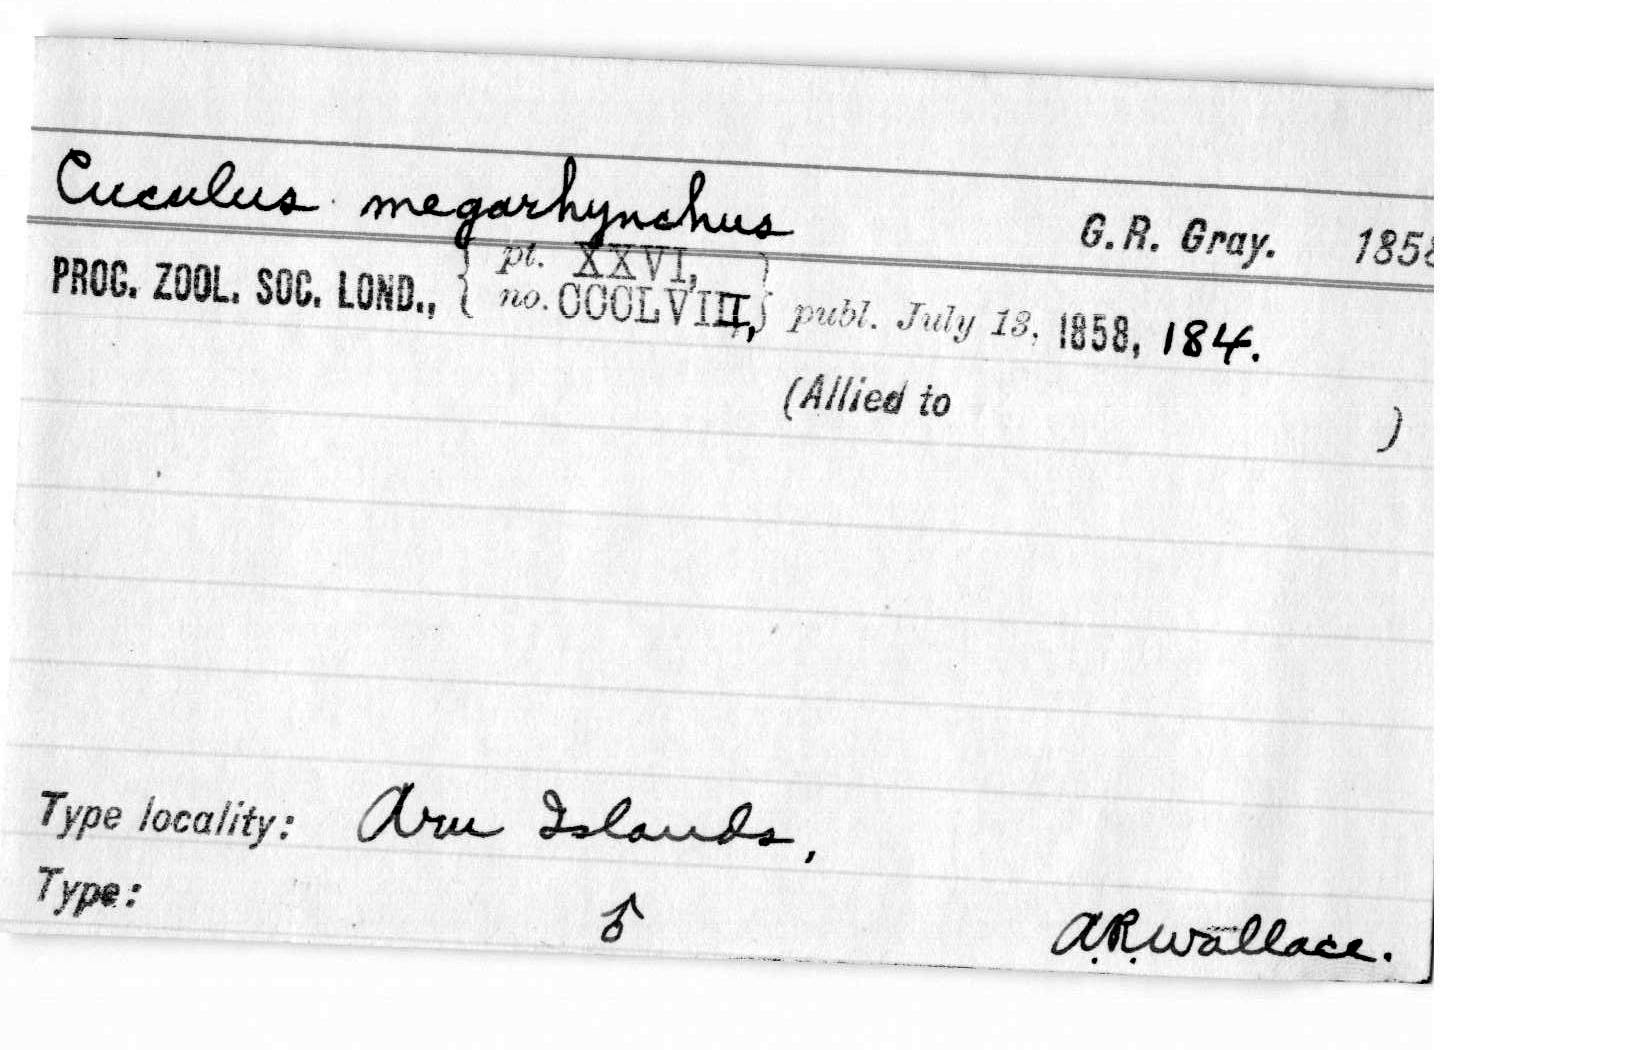 Cuculus megarhynchus G.R. Gray. 1858
PROC. ZOOL. SOC. LOND., { pt. XXVI, }
no. CCCLVIII, publ. July 13, 1858, 184.
(Allied to )
Type locality: Aru Islands,
Type: ♂ A.R. Wallace.